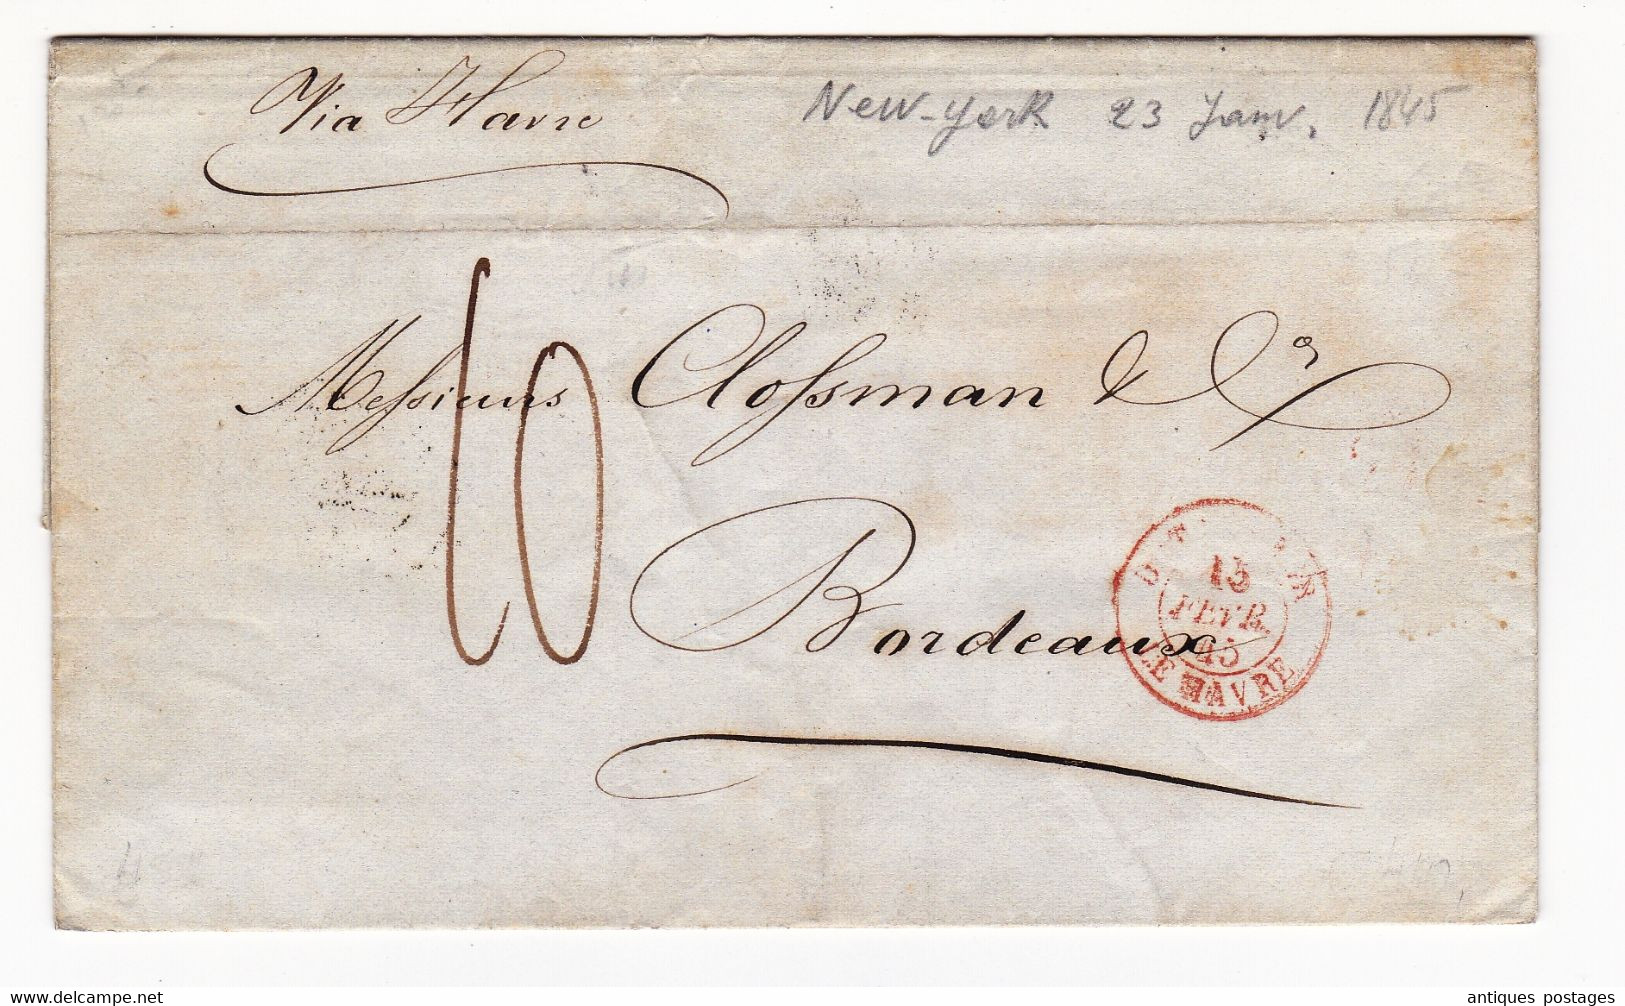 Via Havre
New-york 23 Janv. 1845
10
Messieurs Clossman & Ce
Bordeaux
15
FEVR.
45
LE HAVRE
www.delcampe.net
antiques postages